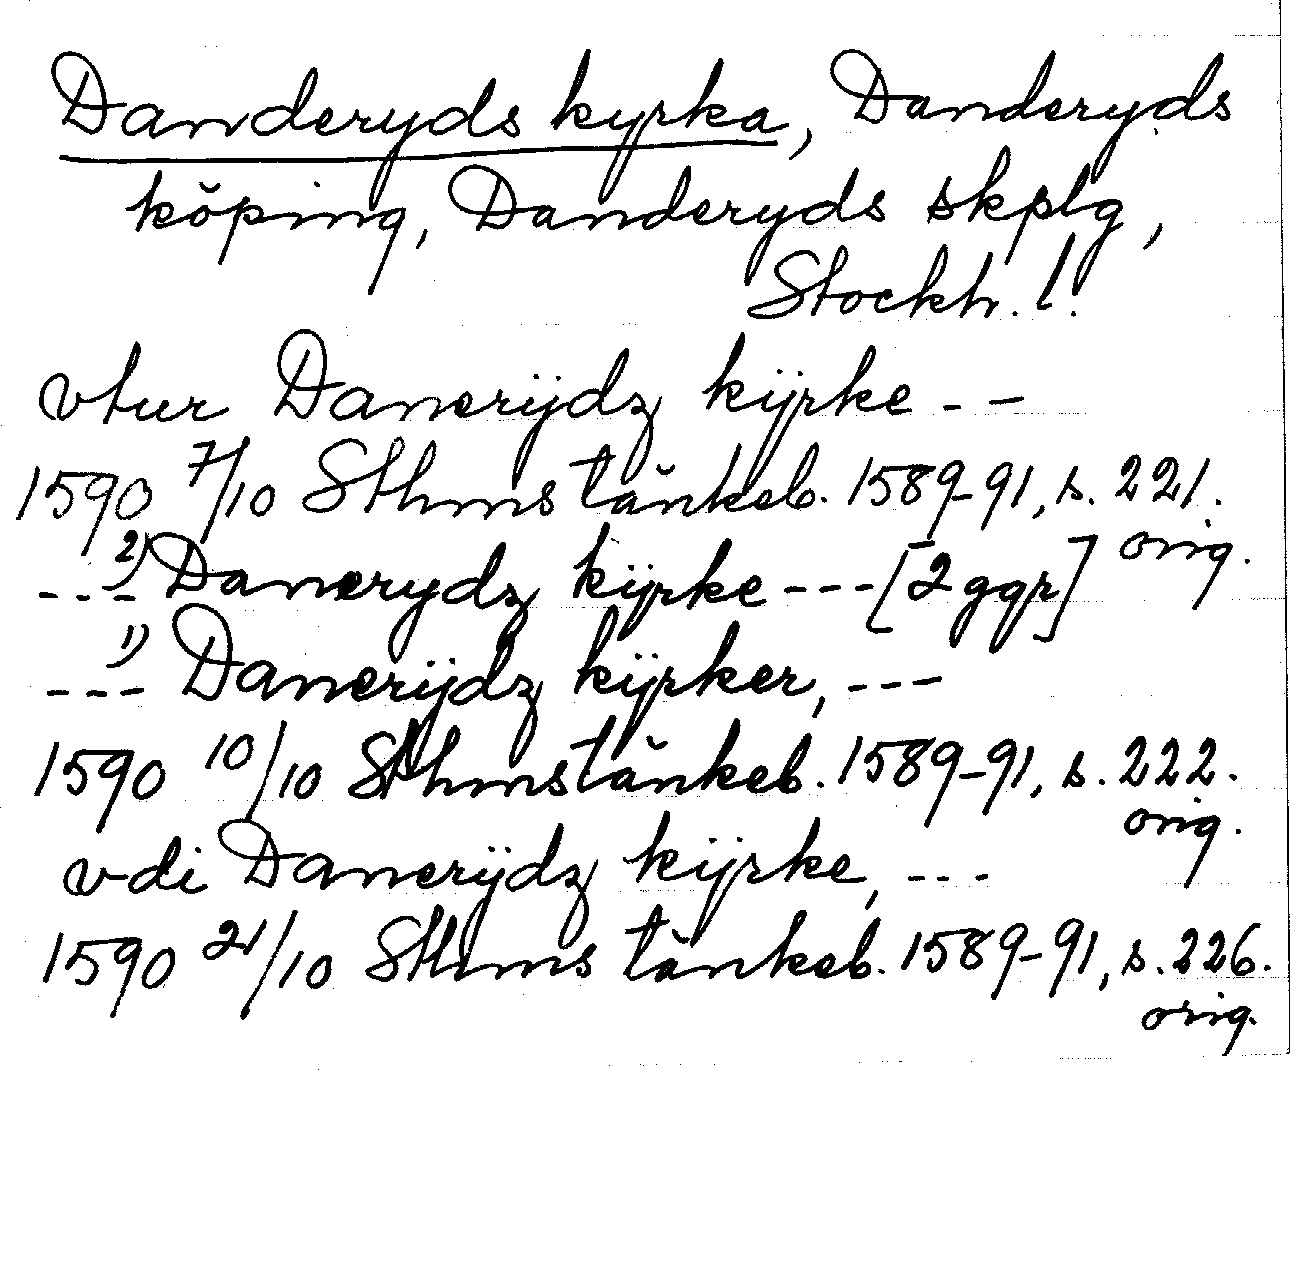 Danderyds kyrka, Danderyds
köping, Danderyds skplg,
Stockh. l.
vtur Danerÿdz kÿrke - -
1590 7/10 Sthms tänkeb. 1589-91, s. 221.
orig.
--- 2) Danerydz kÿrke --- [2 ggr]
--- 1) Danerÿdz kÿrker, ---
1590 10/10 Sthms tänkeb. 1589-91, s. 222.
orig.
vdi Danerÿdz kÿrke, ---
1590 21/10 Sthms tänkeb. 1589-91, s. 226.
orig.